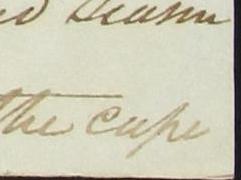 season
the cape